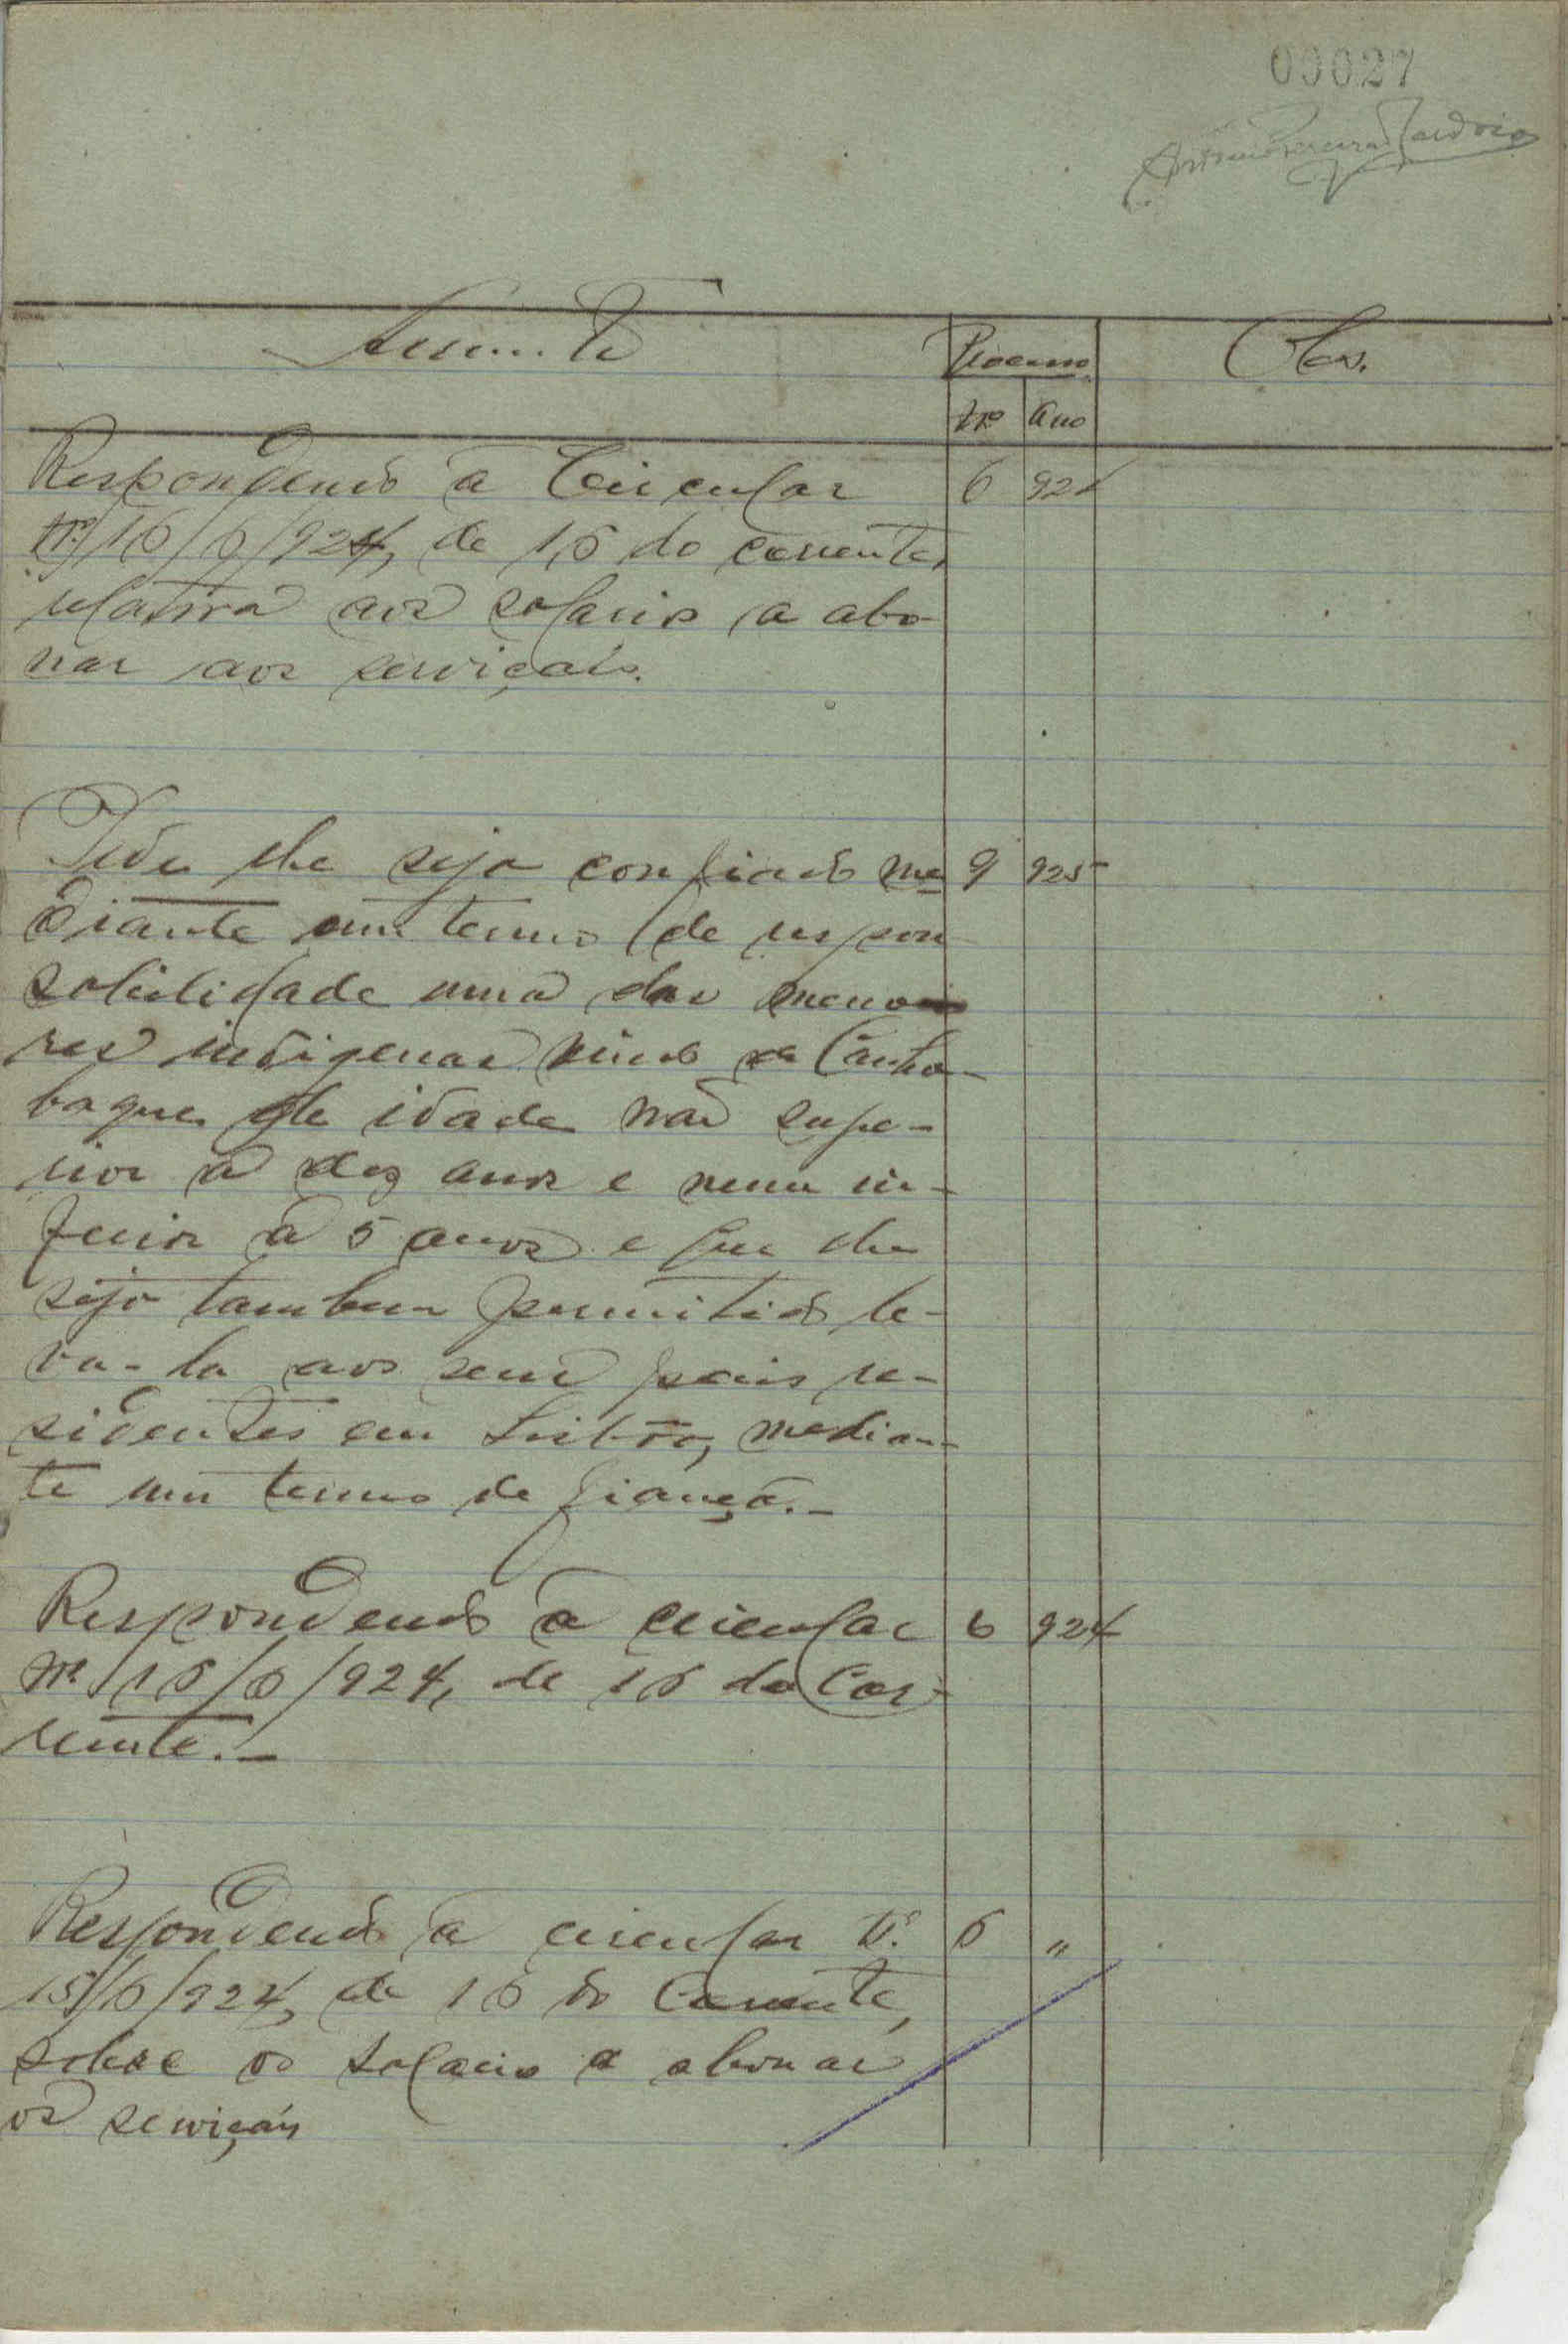 00027
Assunto Processo Obs.
Nº Ano
Respondendo á Circular 6 924
Nº 16/6/924, de 16 do corrente,
relativa aos salarios a abo-
nar aos serviçais.
Pede lhe seja confiado me 9 925
diante um termo de respon
sabilidade uma das meno
res indigenas vindo de Canha-
baque de idade não supe-
rior a dez anos e nem in-
ferior a 5 anos e que lhe
seja tambem permitido le-
va-la aos seus pais re-
sidentes em Lisbôa, median-
te um termo de fiança.-
Respondendo á circular 6 924
nº 16/6/924, de 16 do Cor-
rente.-
Respondendo á circular Nº 6 "
15/6/924, de 16 do Corrente,
sobre os salarios a abonar
os serviçais